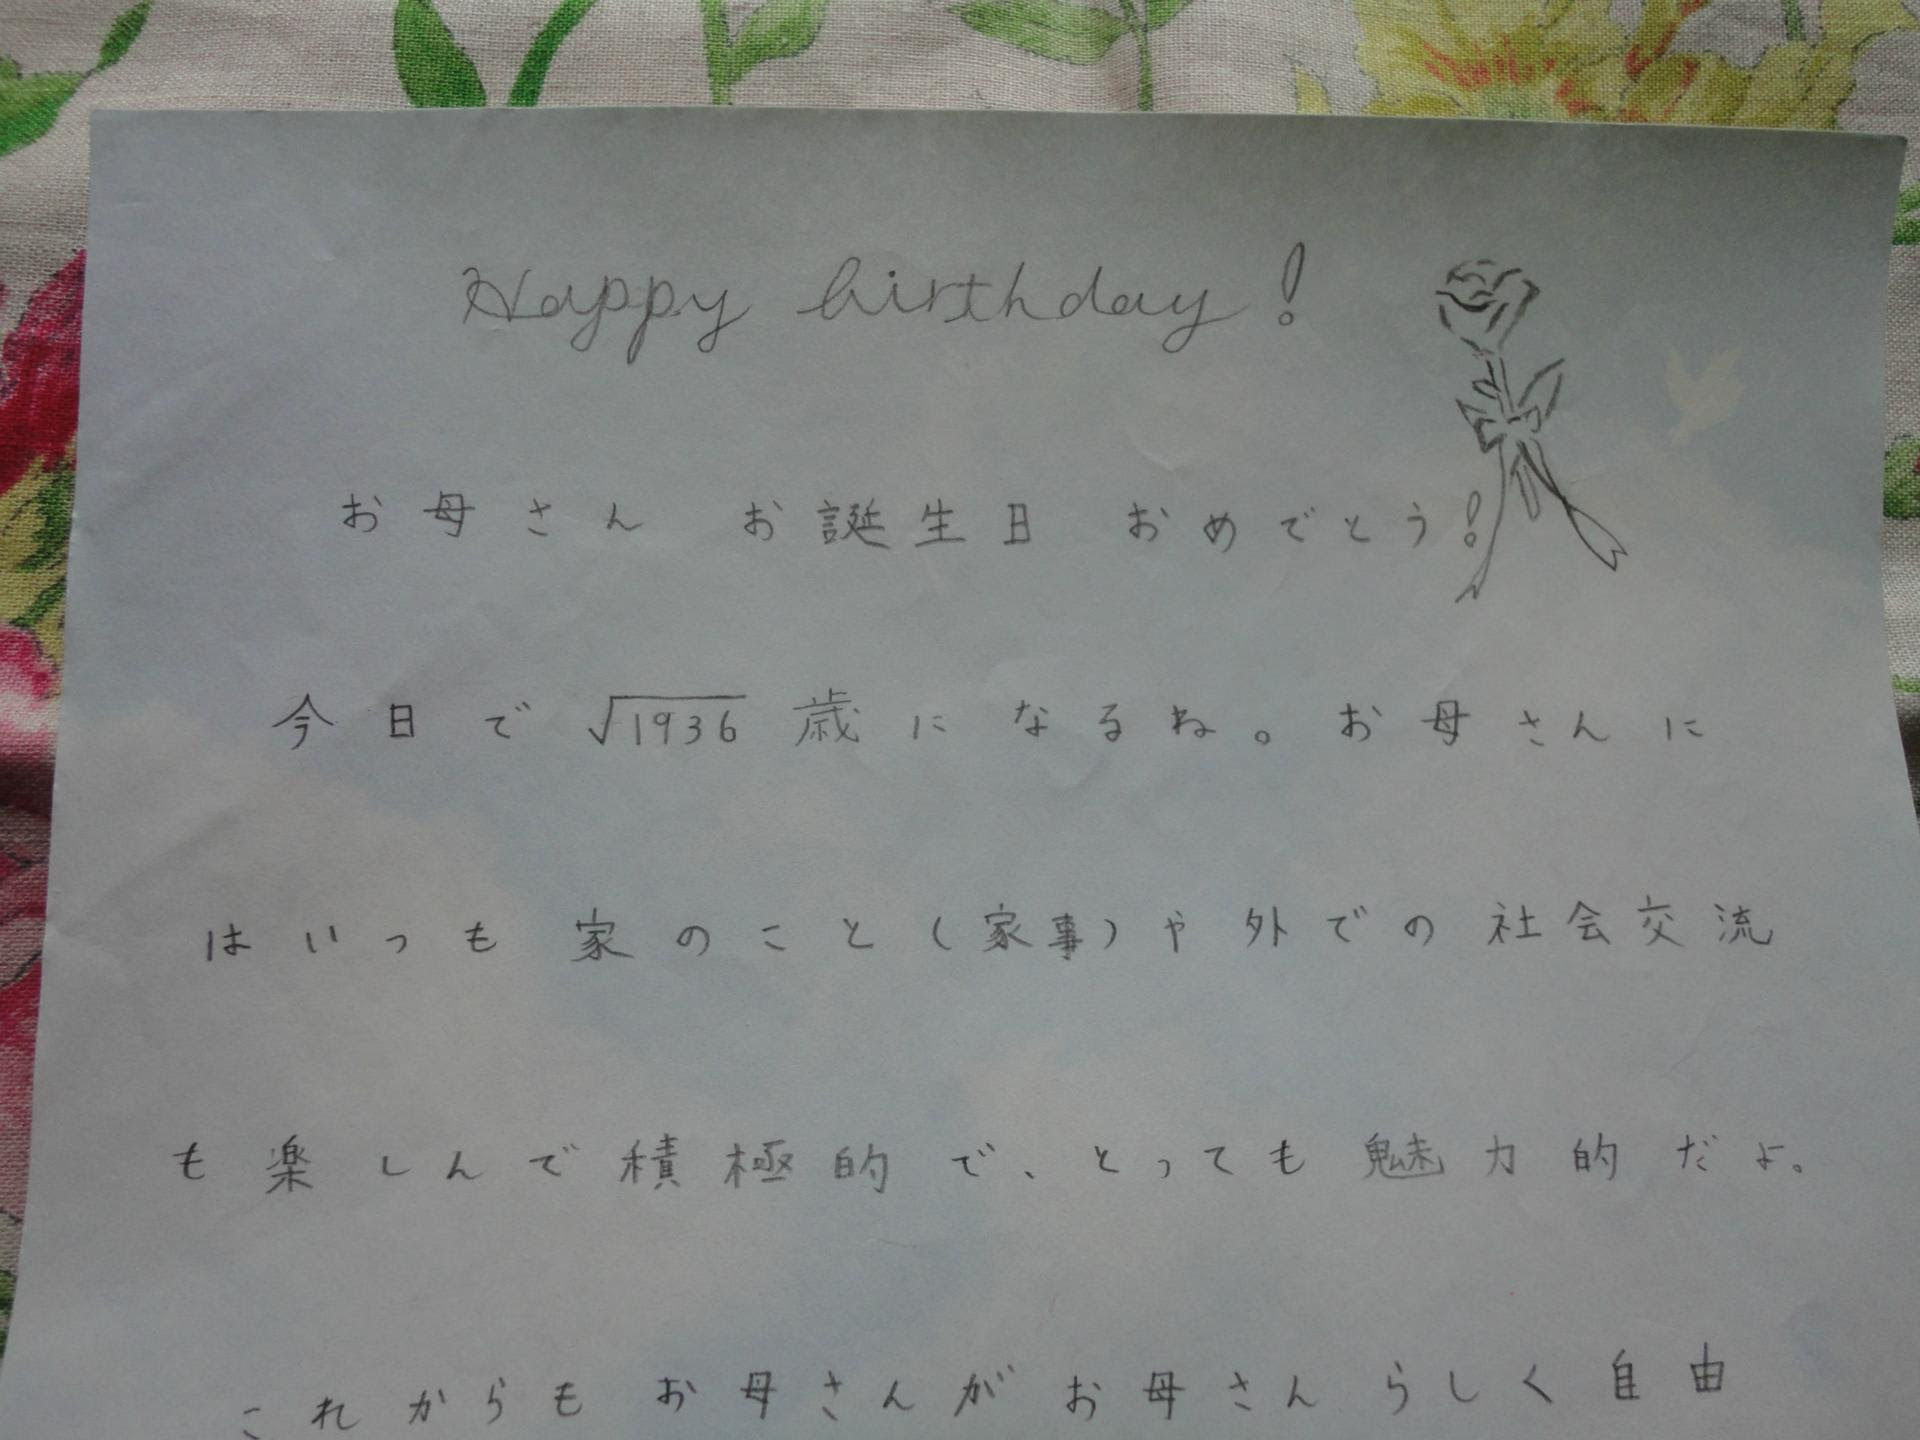 Happy birthday!
お母さん お誕生日 おめでとう!
今日で √1936 歳になるね。お母さんに
はいつも家のこと(家事)や外での社会交流
も楽しんで積極的で、とっても魅力的だよ。
これからもお母さんがお母さんらしく自由